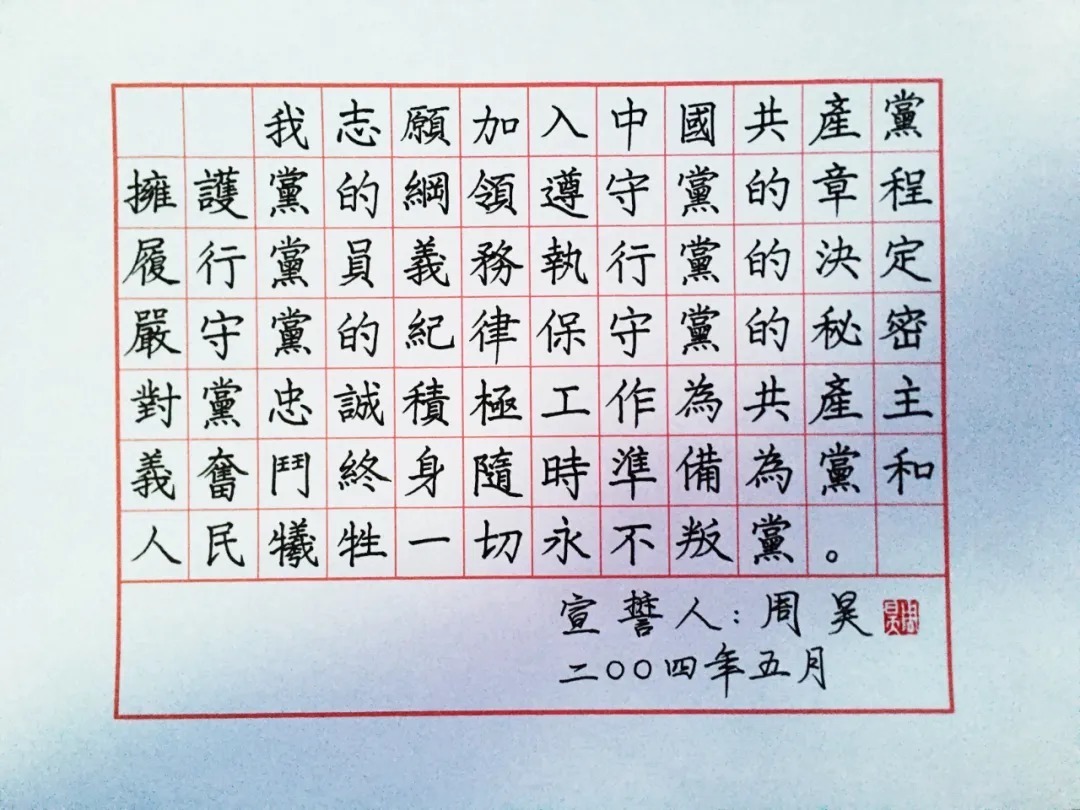 我志願加入中國共產黨
擁護黨的綱領遵守黨的章程
履行黨員義務執行黨的決定
嚴守黨的紀律保守黨的秘密
對黨忠誠積極工作為共產主
義奮鬥終身隨時準備為黨和
人民犧牲一切永不叛黨。
宣誓人：周昊
二〇〇四年五月